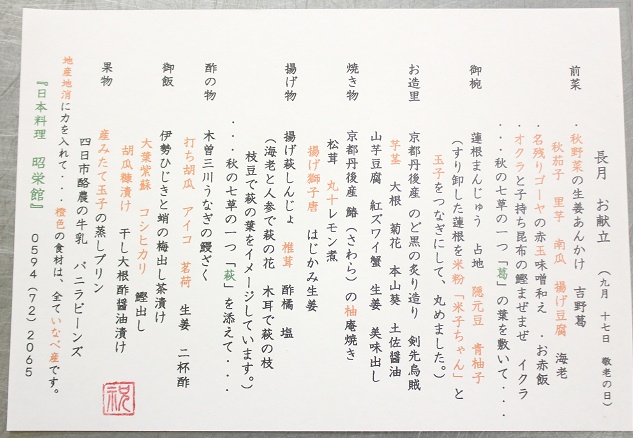 長月 お献立 (九月 十七日 敬老の日)
前菜 ・秋野菜の生姜あんかけ 吉野葛
秋茄子 里芋 南瓜 揚げ豆腐 海老
・名残りゴーヤの赤玉味噌和え ・お赤飯
・オクラと子持ち昆布の鰹まぜまぜ イクラ
・・・秋の七草の一つ「葛」の葉を敷いて・・・
御椀 蓮根まんじゅう 占地 隠元豆 青柚子
(すり卸した蓮根を米粉「米子ちゃん」と
玉子をつなぎにして、丸めました。)
お造里 京都丹後産 のど黒の炙り造り 剣先烏賊
芋茎 大根 菊花 本山葵 土佐醤油
山芋豆腐 紅ズワイ蟹 生姜 美味出し
焼き物 京都丹後産 鰆(さわら)の柚庵焼き
松茸 丸十レモン煮
揚げ獅子唐 はじかみ生姜
揚げ物 揚げ萩しんじょ 椎茸 酢橘 塩
(海老と人参で萩の花 木耳で萩の枝
枝豆で萩の葉をイメージしています。)
・・・秋の七草の一つ「萩」を添えて・・・
酢の物 木曽三川うなぎの鰻ざく
打ち胡瓜 アイコ 茗荷 生姜 二杯酢
御飯 伊勢ひじきと蛸の梅出し茶漬け
大葉紫蘇 コシヒカリ 鰹出し
胡瓜糠漬け 干し大根酢醤油漬け
果物 産みたて玉子の蒸しプリン
四日市酪農の牛乳 バニラビーンズ
地産地消に力を入れて・・・橙色の食材は、全ていなべ産です。
『日本料理 昭栄館』 0594(72)2065
祝